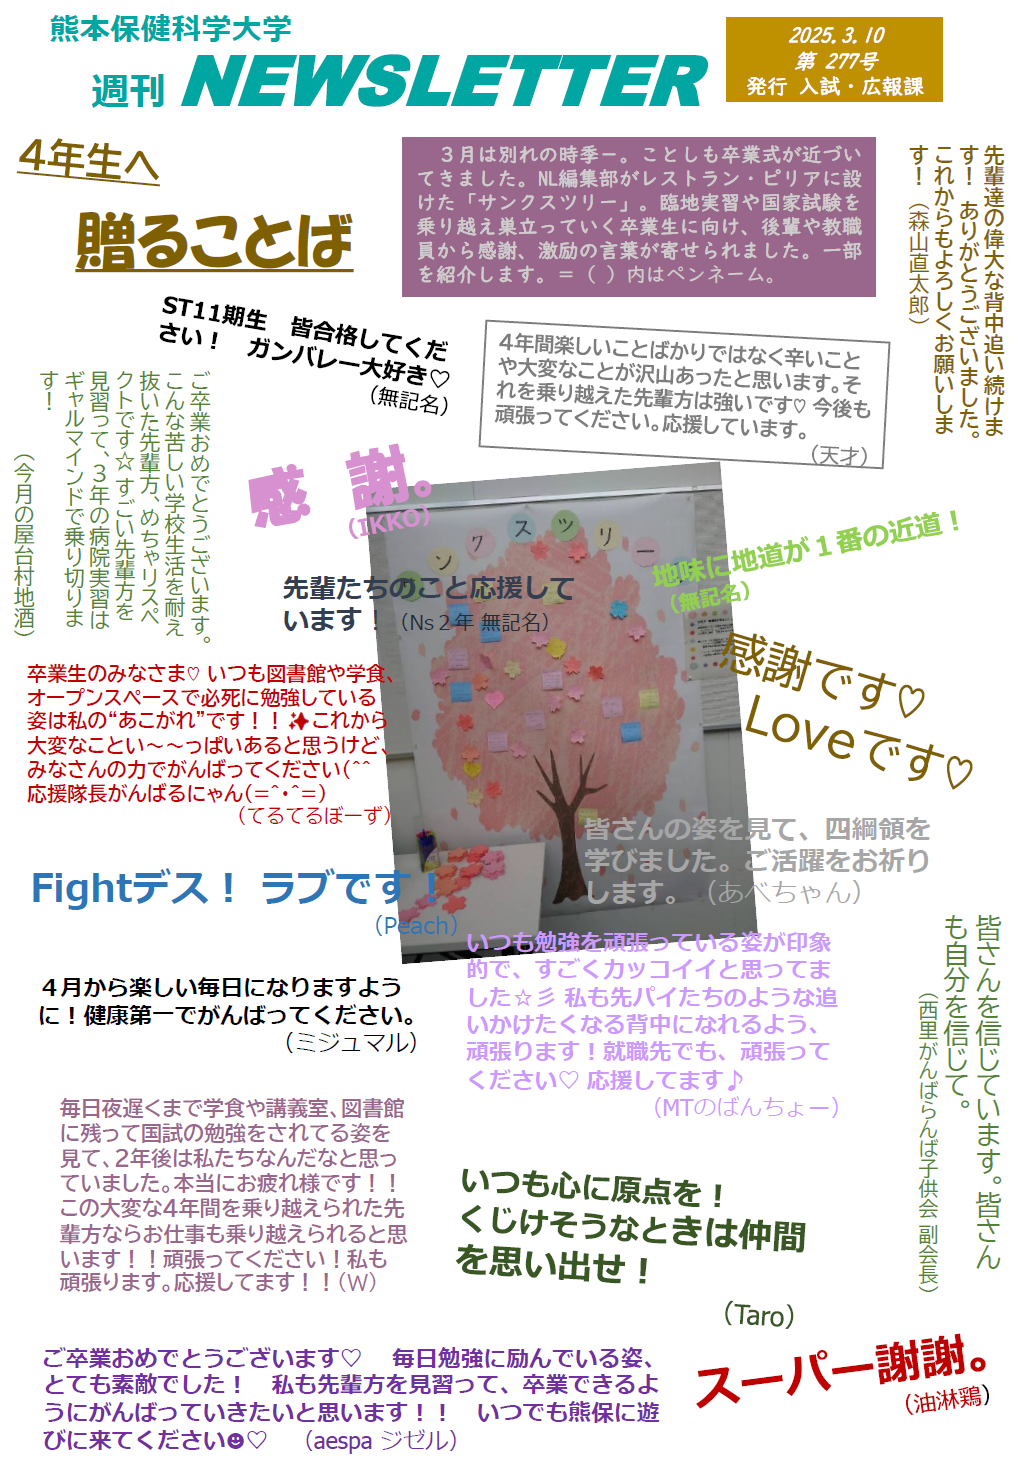 熊本保健科学大学
週刊 NEWSLETTER
2025.3.10
第 277号
発行 入試・広報課
4年生へ
贈ることば
３月は別れの時季－。ことしも卒業式が近づい
てきました。NL編集部がレストラン・ピリアに設
けた「サンクスツリー」。臨地実習や国家試験を
乗り越え巣立っていく卒業生に向け、後輩や教職
員から感謝、激励の言葉が寄せられました。一部
を紹介します。＝（ ）内はペンネーム。
先輩達の偉大な背中追い続けま
す！ ありがとうございました。
これからもよろしくお願いしま
す！（森山直太郎）
ST11期生　皆合格してくだ
さい！　ガンバレー大好き♡
（無記名）
4年間楽しいことばかりではなく辛いこと
や大変なことが沢山あったと思います。そ
れを乗り越えた先輩方は強いです♡ 今後も
頑張ってください。応援しています。
（天才）
ご卒業おめでとうございます。
こんな苦しい学校生活を耐え
抜いた先輩方、めちゃリスペ
クトです☆すごい先輩方を
見習って、３年の病院実習は
ギャルマインドで乗り切りま
す！
（今月の屋台村地酒）
感 謝。
（IKKO）
ンクスツリー
地味に地道が１番の近道！
（無記名）
先輩たちのこと応援して
います！（Ns２年 無記名）
感謝です♡
Loveです♡
卒業生のみなさま♡ いつも図書館や学食、
オープンスペースで必死に勉強している
姿は私の“あこがれ”です！！✨これから
大変なことい～～っぱいあると思うけど、
みなさんの力でがんばってください(＾＾
応援隊長がんばるにゃん(=＾・＾=)
（てるてるぼーず）
皆さんの姿を見て、四綱領を
学びました。ご活躍をお祈り
します。（あべちゃん）
Fightデス！ ラブです！
（Peach）
いつも勉強を頑張っている姿が印象
的で、すごくカッコイイと思ってま
した☆彡 私も先パイたちのような追
いかけたくなる背中になれるよう、
頑張ります！就職先でも、頑張って
ください♡ 応援してます♪
（MTのばんちょー）
皆さんを信じています。皆さん
も自分を信じて。
（西里がんばらんば子供会 副会長）
４月から楽しい毎日になりますよう
に！健康第一でがんばってください。
（ミジュマル）
毎日夜遅くまで学食や講義室、図書館
に残って国試の勉強をされてる姿を
見て、2年後は私たちなんだなと思っ
ていました。本当にお疲れ様です！！
この大変な4年間を乗り越えられた先
輩方ならお仕事も乗り越えられると思
います！！頑張ってください！私も
頑張ります。応援してます！！（W）
いつも心に原点を！
くじけそうなときは仲間
を思い出せ！
（Taro）
ご卒業おめでとうございます♡　毎日勉強に励んでいる姿、
とても素敵でした！　私も先輩方を見習って、卒業できるよ
うにがんばっていきたいと思います！！　いつでも熊保に遊
びに来てください☻♡　（aespa ジゼル）
スーパー謝謝。
（油淋鶏）